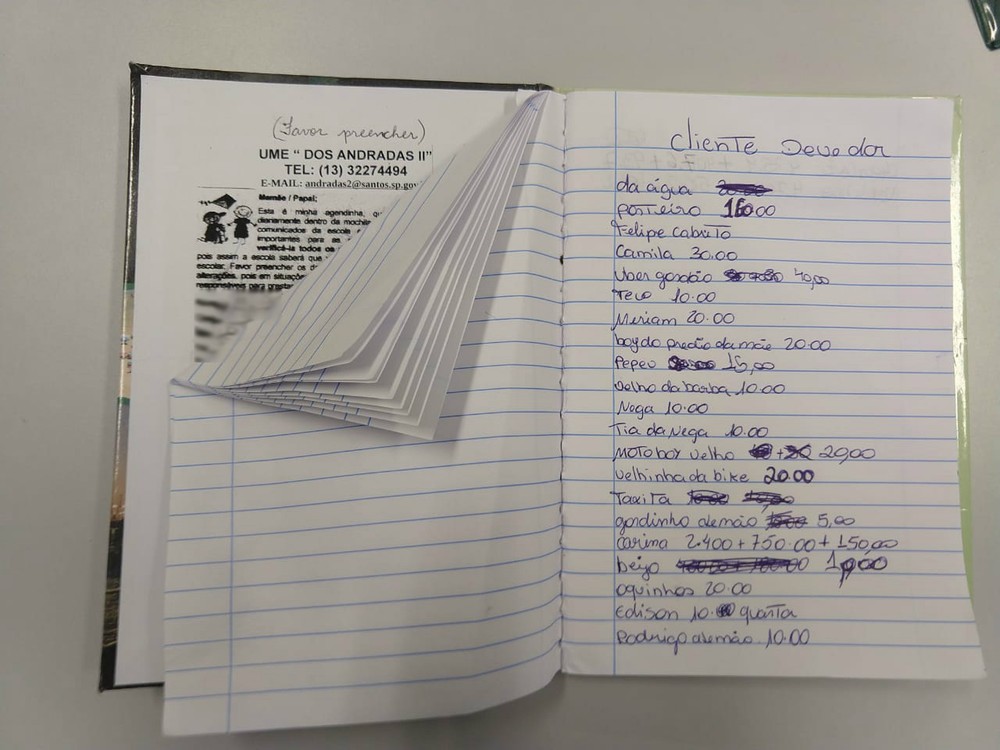 (Favor preencher)
UME " DOS ANDRADAS II"
TEL: (13) 32274494
E-MAIL: andradas2@santos.sp.gov
Mamãe / Papai:
Esta é minha agendinha, qu
diariamente dentro da mochila
comunicados da escola e
importantes para as
verificá-la todos os
pois assim a escola saberá que
escolar. Favor preencher os d
alterações, pois em situações
responsáveis para prestar
Cliente Devedor
da água
porteiro 160.00
Felipe Cabrito
Camila 30.00
Uber gordão 40,00
Teco 10.00
Meriam 20.00
boy do predio da mãe 20.00
Pepeu 15,00
velho da barba 10.00
Nega 10.00
Tia da Nega 10.00
MOTOboy velho 20,00
velhinha da bike 20.00
Taxita
gordinho alemão 5,00
carina 2.400 + 750.00 + 150,00
beijo
oquinhos 20.00
Edison 10. quarta
Rodrigo alemão 10.00